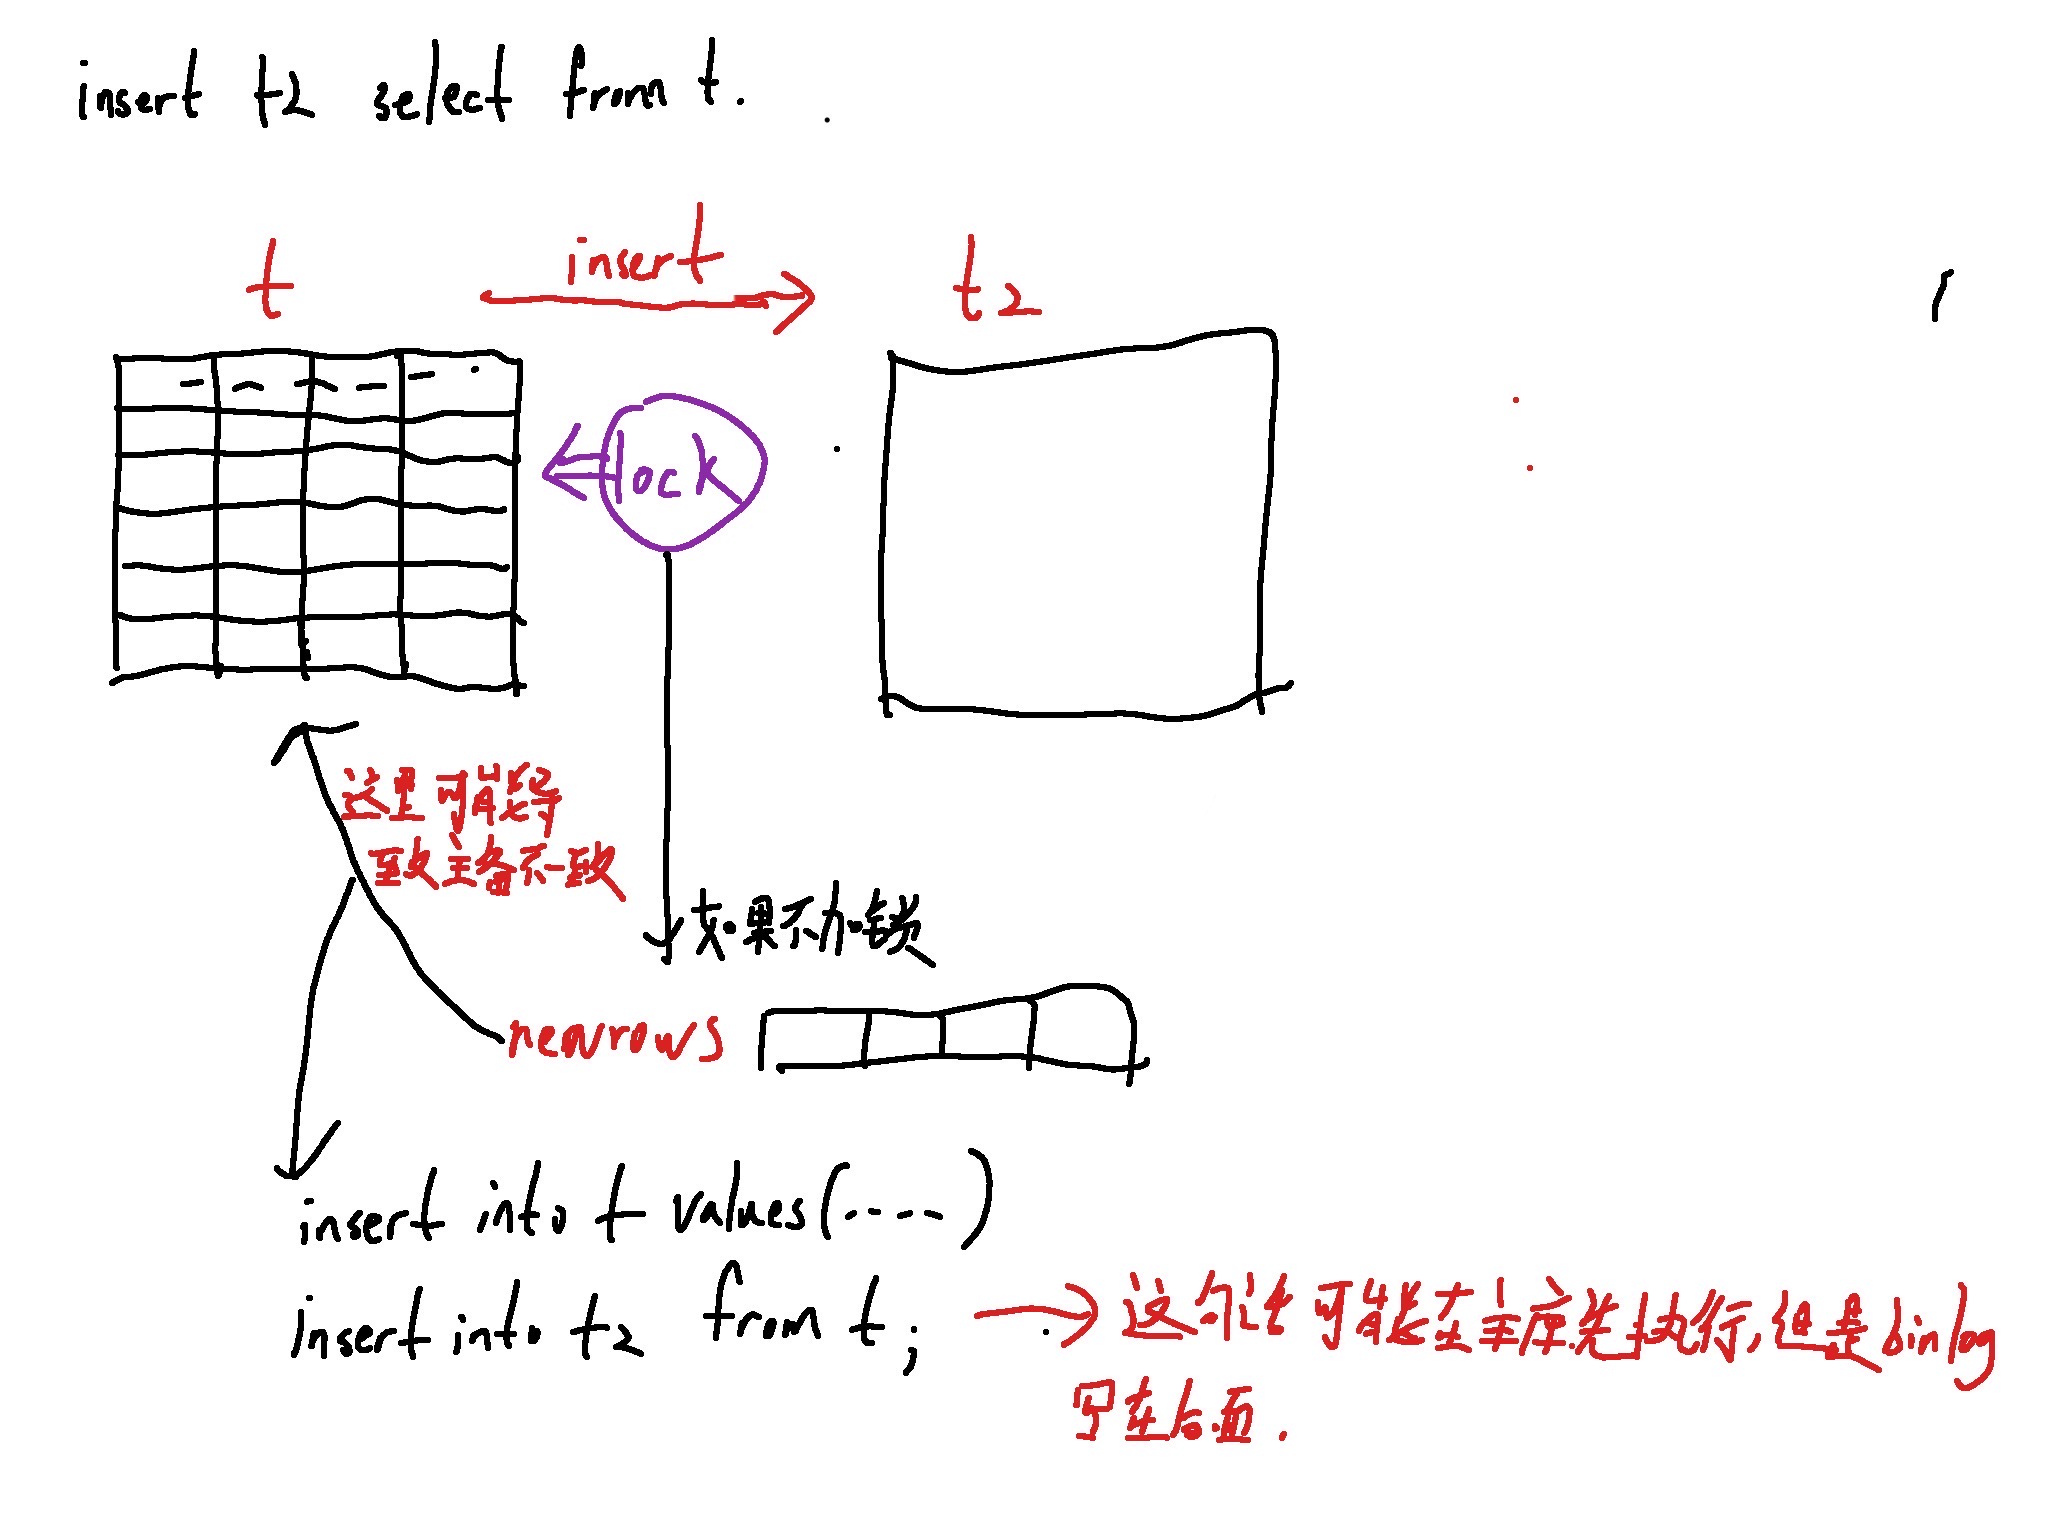 insert t2 select from t.
t insert t2
lock
这里可能导
致主备不一致
如果不加锁
newrows
insert into t values(.....)
insert into t2 from t;
这句话可能在主库先执行,但是binlog
写在后面.